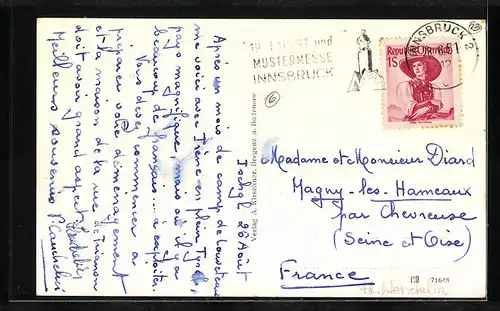 Ischgl 26 Août
Après un mois de camp de louveteaux
me voici avec Pierre en plein Tyrol
pays magnifique, mais où il y a
beaucoup de français... à exploiter.
Vous devez commencer à
préparer votre déménagement
et la maison de la rue de Trianon
doit avoir grand aspect
Meilleurs souvenirs
Verlag A. Kirschner, Bregenz a. Bodensee
MUSTERMESSE
INNSBRUCK
INNSBRUCK 2
51
Republik Österreich
1S
6
Madame et Monsieur Diard
Magny-les-Hameaux
par Chevreuse
(Seine et Oise)
France